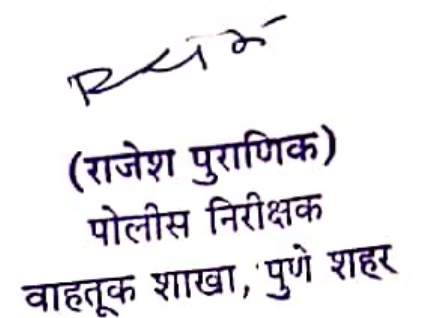 (राजेश पुराणिक)
पोलीस निरीक्षक
वाहतूक शाखा, पुणे शहर